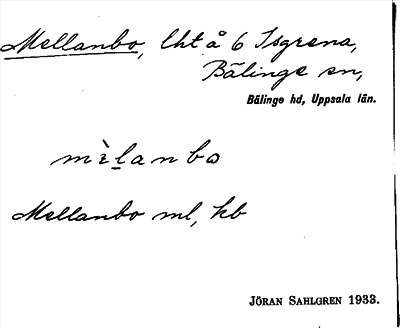 Mellanbo, lht å 6 Isgrena,
Bälinge sn,
Bälinge hd, Uppsala län.
mὲl̠anbɷ
Mellanbo ml, kb
JÖRAN SAHLGREN 1933.